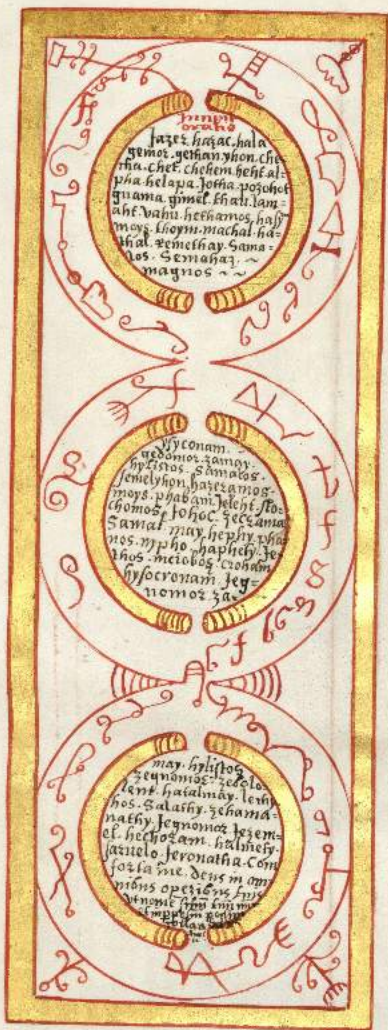 Incipit
oratio
Jazer. hazac. hala
gemoz. gethan. yhon. che-
tha. chet. chehem. heht. al-
pha. helapa. Jotha. pozohot
guama. gimel. thau. lam-
aht. vahu. hethamos. hasy
mays. thoym. machal. ha-
thal. Remethay. Sama-
los. Semahaz. ~
magnos ~ ~
ysyconam.
gedomoz. zamay.
hylistos. Samalos.
semelyhon. hazezamos.
moys. phabam. Jeseht. sto-
chomos. Johoc. zeczama
Samal. may. hephy. pha
nos. nypho. haphehy. Je-
thos. meiobos. croham
hysocronam. Jeg-
nomoz. za-
may. hylistos
zegnomoz. zebolo
lent. hatalmay.
hos. Salathy. zehama-
nathy. Jegnomoz. Jezem-
el. hechozam. halmeey.
Jazuelo. Jeronatha. Con
forta me. deus in om
nibus operibus